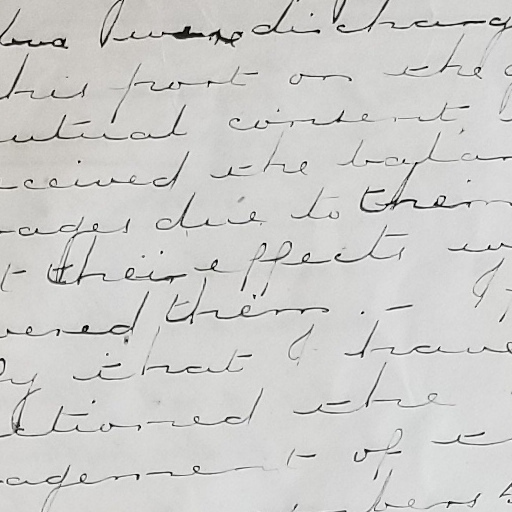 were discharg
his port on the
utual consent
ceived the balan
ages due to them
t their effects w
vered them . - I f
ly that I have
ctioned the
agement of t
bers